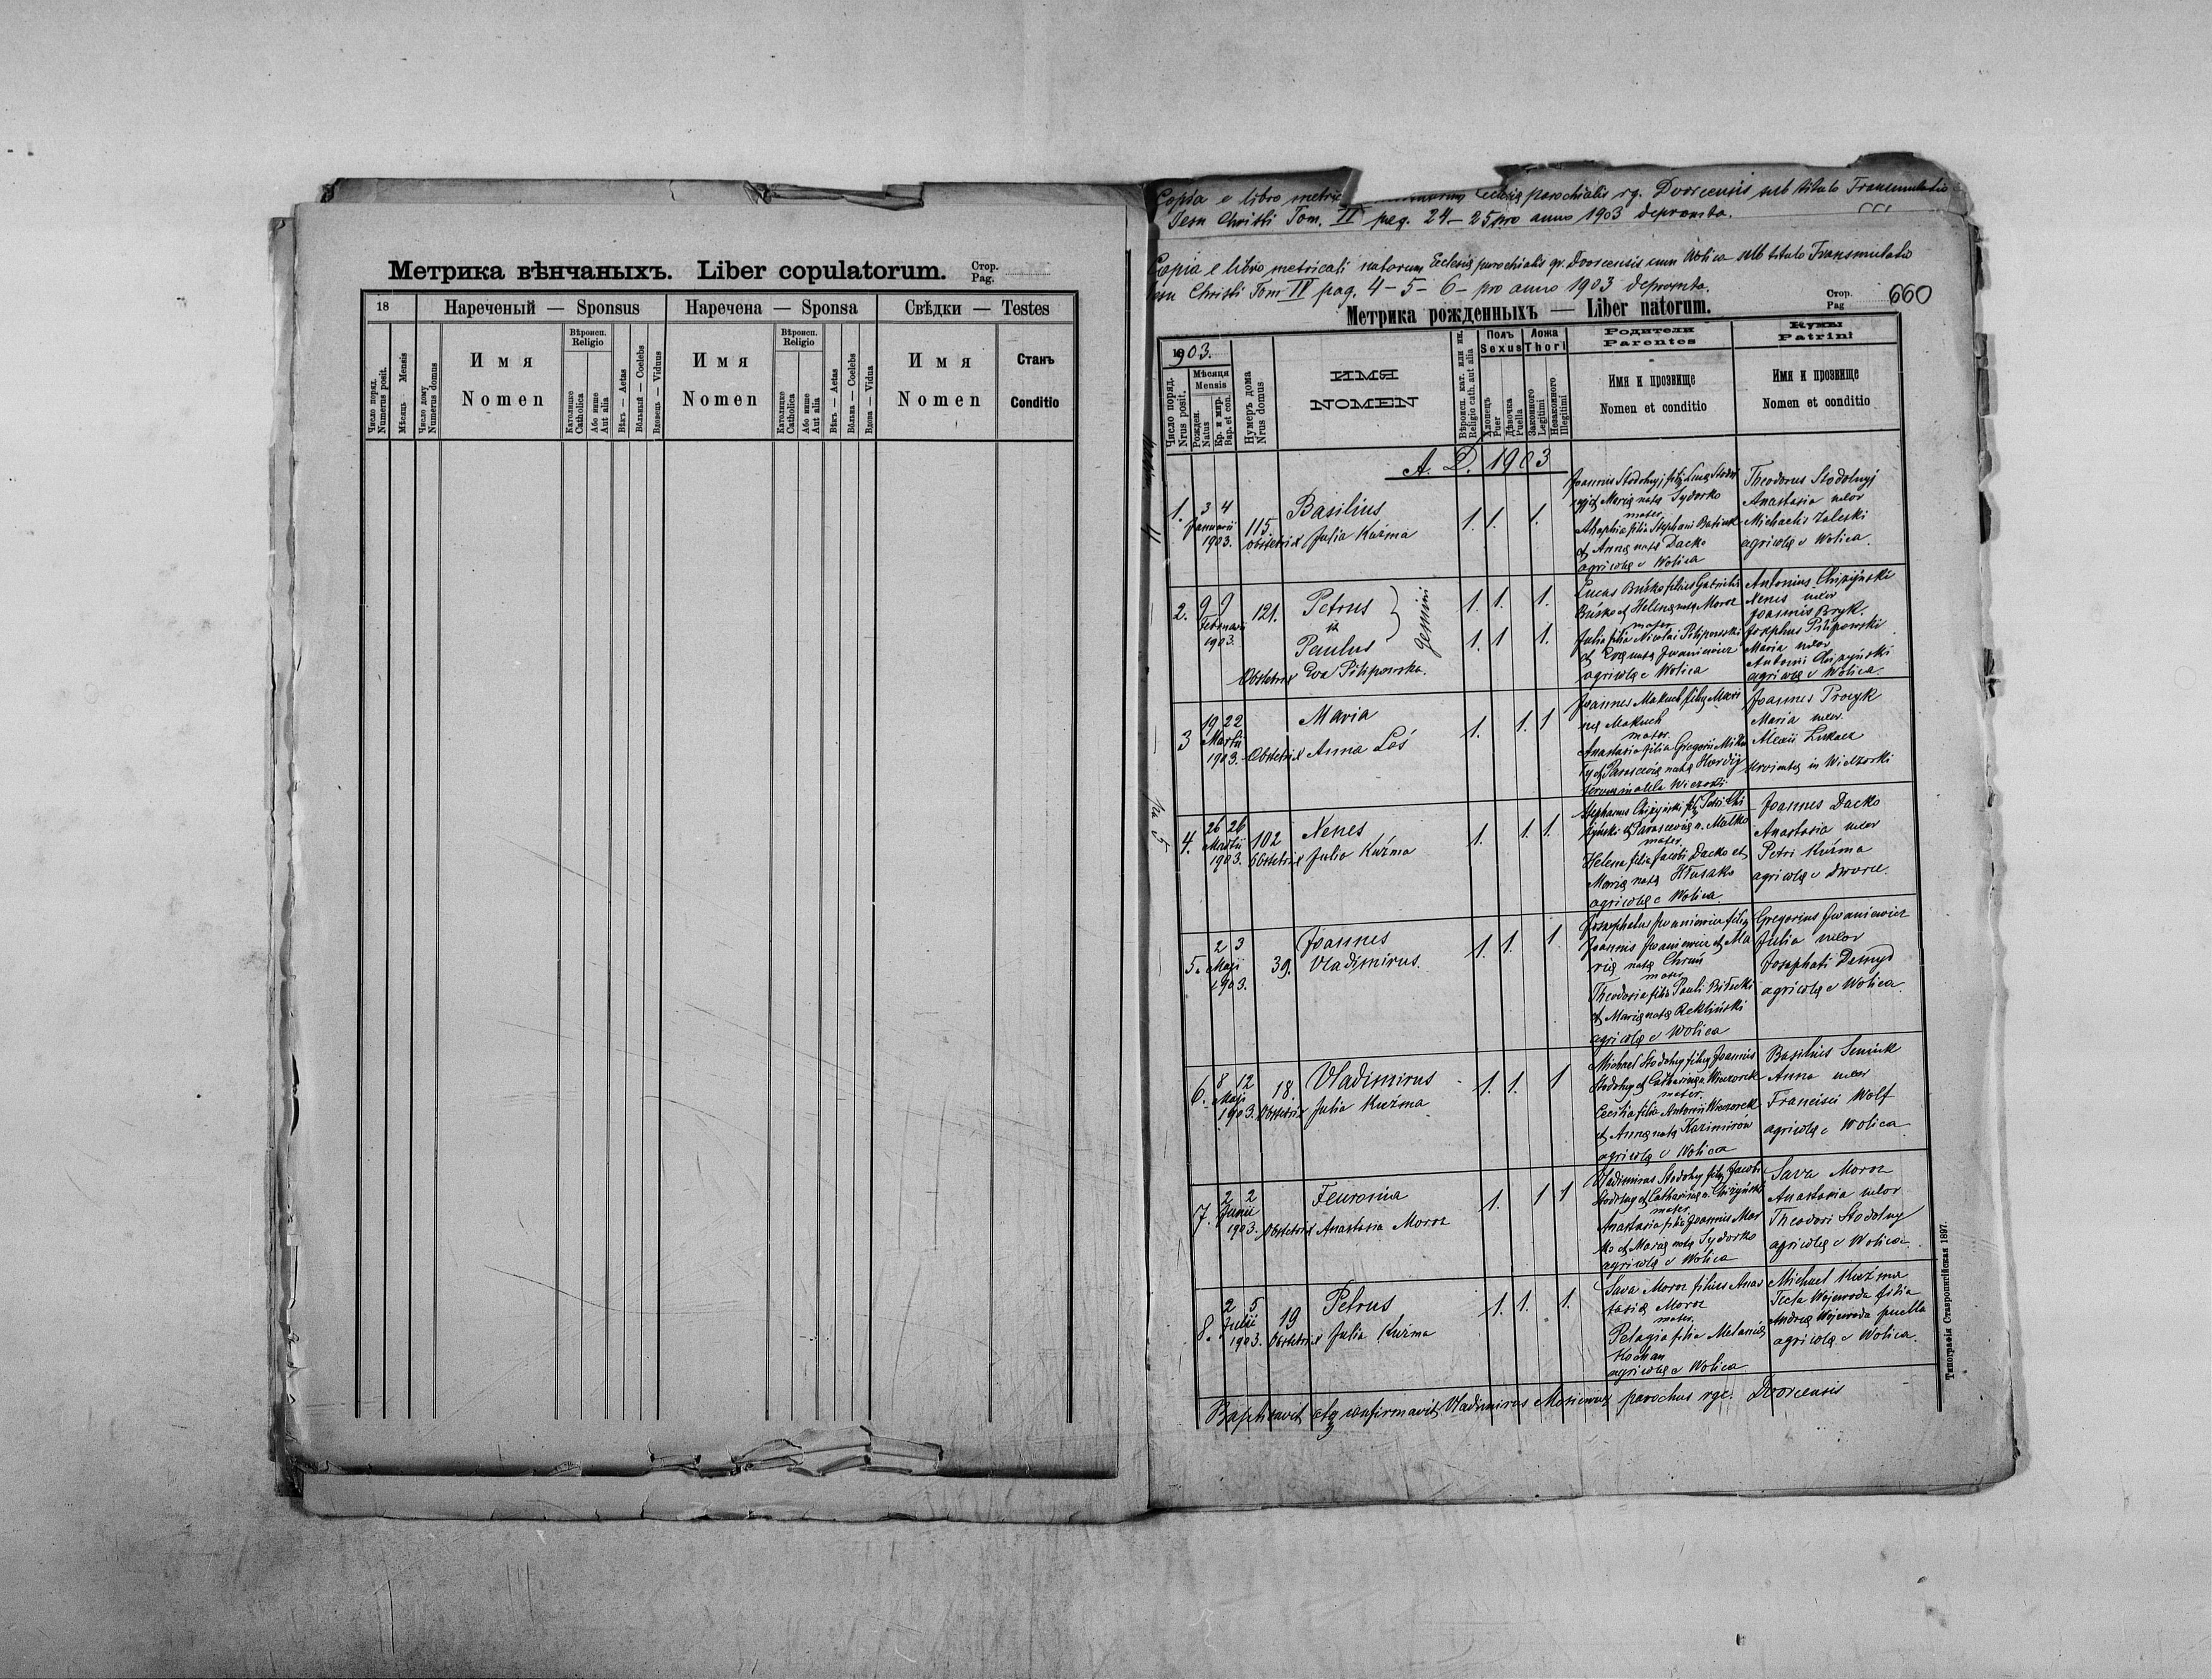 Метрика вѣнчаныхъ. Liber copulatorum. Стор. Pag.
18
Нареченый — Sponsus
Наречена — Sponsa
Свѣдки — Testes
Число поряд. Numerus posit.
Мѣсяць Mensis
Число дому Numerus domus
Имя
Nomen
Вѣроисп. Religio
Католицке Catholica
Або инше Aut alia
Вѣкъ — Aetas
Вольный — Coelebs
Вдовець — Viduus
Имя
Nomen
Вѣроисп. Religio
Католицке Catholica
Або инше Aut alia
Вѣкъ — Aetas
Вольна — Coelebs
Вдова — Vidua
Имя
Nomen
Станъ
Conditio
Copia e libro parochialis rg. Dvorcensis sub titulo
Jesu Christi Tom. II pag. 24–25 pro anno 1903 deprompta.
Copia e libro metricali natorum Ecclesię parochialis gr. Dvorcensis cum Wolica sub titulo Transmutatio
Jesu Christi Tom IV pag. 4–5–6– pro anno 1903 deprompta.
Метрика рожденныхъ — Liber natorum.
Стор. Pag
660
1903.
Число поряд. Nrus posit.
Мѣсяця Mensis
Рожден. Natus
Кр. и мир. Bap. et con.
Нумеръ дома Nrus domus.
ИМЯ
NOMEN
Вѣроисп. кат. или ин. Religio cath. aut alia
Полъ Sexus
Хлопець Puer
Дѣвочка Puella
Ложа Thori
Законного Legitimi
Незаконного Illegitimi
Родители
Parentes
Имя и прозвище
Nomen et conditio
Кумы
Patrini
Имя и прозвище
Nomen et conditio
A. D. 1903
1. 3 4 Januarii 1903. 115
Basilius
obstetrix Julia Kuźma
1. 1. 1.
Joannis Stodolnyj
et Marię natę Sydorko
mater
filia Stephani
et Annę natę Dacko
agricolę e Wolica
Theodorus Stodolnyj
Anastasia uxor
Michaelis Zaleski
agricolę e Wolica.
2. 9 9 Februarii 1903. 121.
Petrus
et
Paulus
gemini
Obstetrix Eva Pilipowska.
1. 1. 1.
1. 1 1.
Lucas Buśko filius Gabrielis
Buśko et Helenę natę Moroz
mater
Julia filia Nicolai Pilipowski
et Evę natę Iwaniewicz
agricolę e Wolica
Antonius Chiżyński
Nenes uxor
Joannis Bryk.
Josephus Pilipowski
Maria uxor
Antonii Chiżyński
agricolę e Wolica.
3 19 22 Martii 1903.
Maria
Obstetrix Anna Leś
1. 1. 1
Joannes Makuch filius
Makuch
mater
Anastasia filia Gregorii
et Parascevię natę
Joannes Procyk
Maria uxor
Alexii Lukacz
in Wielzorki
4. 26 26 Martii 1903. 102
Nenes
Obstetrix Julia Kuźma
1. 1. 1.
Stephanus Chiżyński filius Petri Chi
żyński et Parascevię n. Matko
mater
Helena filia Jacobi Dacko et
Marię natę
agricolę e Wolica
Joannes Dacko
Anastasia uxor
Petri Kuźma
agricolę e Dworce.
5. 2 3 Maji 1903. 39.
Joannes
Vladimirus.
1. 1. 1.
Josaphatus Iwaniewicz filius
Joannis Iwaniewicz et Ma
rię natę Chruń
mater
Theodosia filia Pauli Bilecki
et Marię natę Rekliński
agricolę e Wolica
Gregorius Iwaniewicz
Julia uxor
Josaphati Demyd
agricolę e Wolica.
6. 8 12 Maji 1903. 18.
Vladimirus
Obstetrix Julia Kuźma
1. 1. 1
Michael Stodolny filius Joannis
Stodolny et Catharinę n. Wieczorek
mater
Cecilia filia Antonii Wieczorek
et Annę natę Kazimirów
agricolę e Wolica
Basilius Seniuk
Anna uxor
Francisci Wolf
agricolę e Wolica
7. 2 2 Junii 1903.
Feuronia
Obstetrix Anastasia Moroz
1. 1 1
Vladimirus Stodolny filius Jacobi
Stodolny et Catharinę n. Chiżyński
mater
Anastasia filia Joannis
et Marię natę Sydorko
agricolę e Wolica
Sava Moroz
Anastasia uxor
Theodori Stodolny
agricolę e Wolica.
8. 2 5 Julii 1903. 19
Petrus
Obstetrix Julia Kuźma
1. 1. 1.
Sava Moroz filius Anas
tasię Moroz
mater
Pelagia filia Melanię
Kochan
agricolę e Wolica
Michael Kuźma
Tecla Wojewoda filia
Andreę Wojewoda puella
agricolę e Wolica.
Baptisavit atq confirmavit Vladimirus parochus rgc. Dvorcensis
Типографія Ставропигійская 1897.